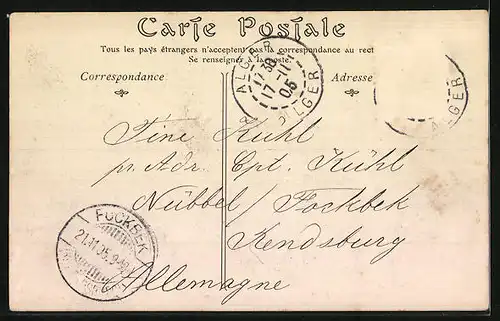 Carte Postale
Tous les pays étrangers n'acceptent pas la correspondance au rect
Se renseigner à la poste.
Correspondance
Adresse
ALGER
17 30
17 -11
05
ALGER
ALGER
Tine Kühl
pr. Adr. Cpt. Kühl
Nübbel / Fockbek
Rendsburg
Allemagne
FOCKBEK
21.11.05.